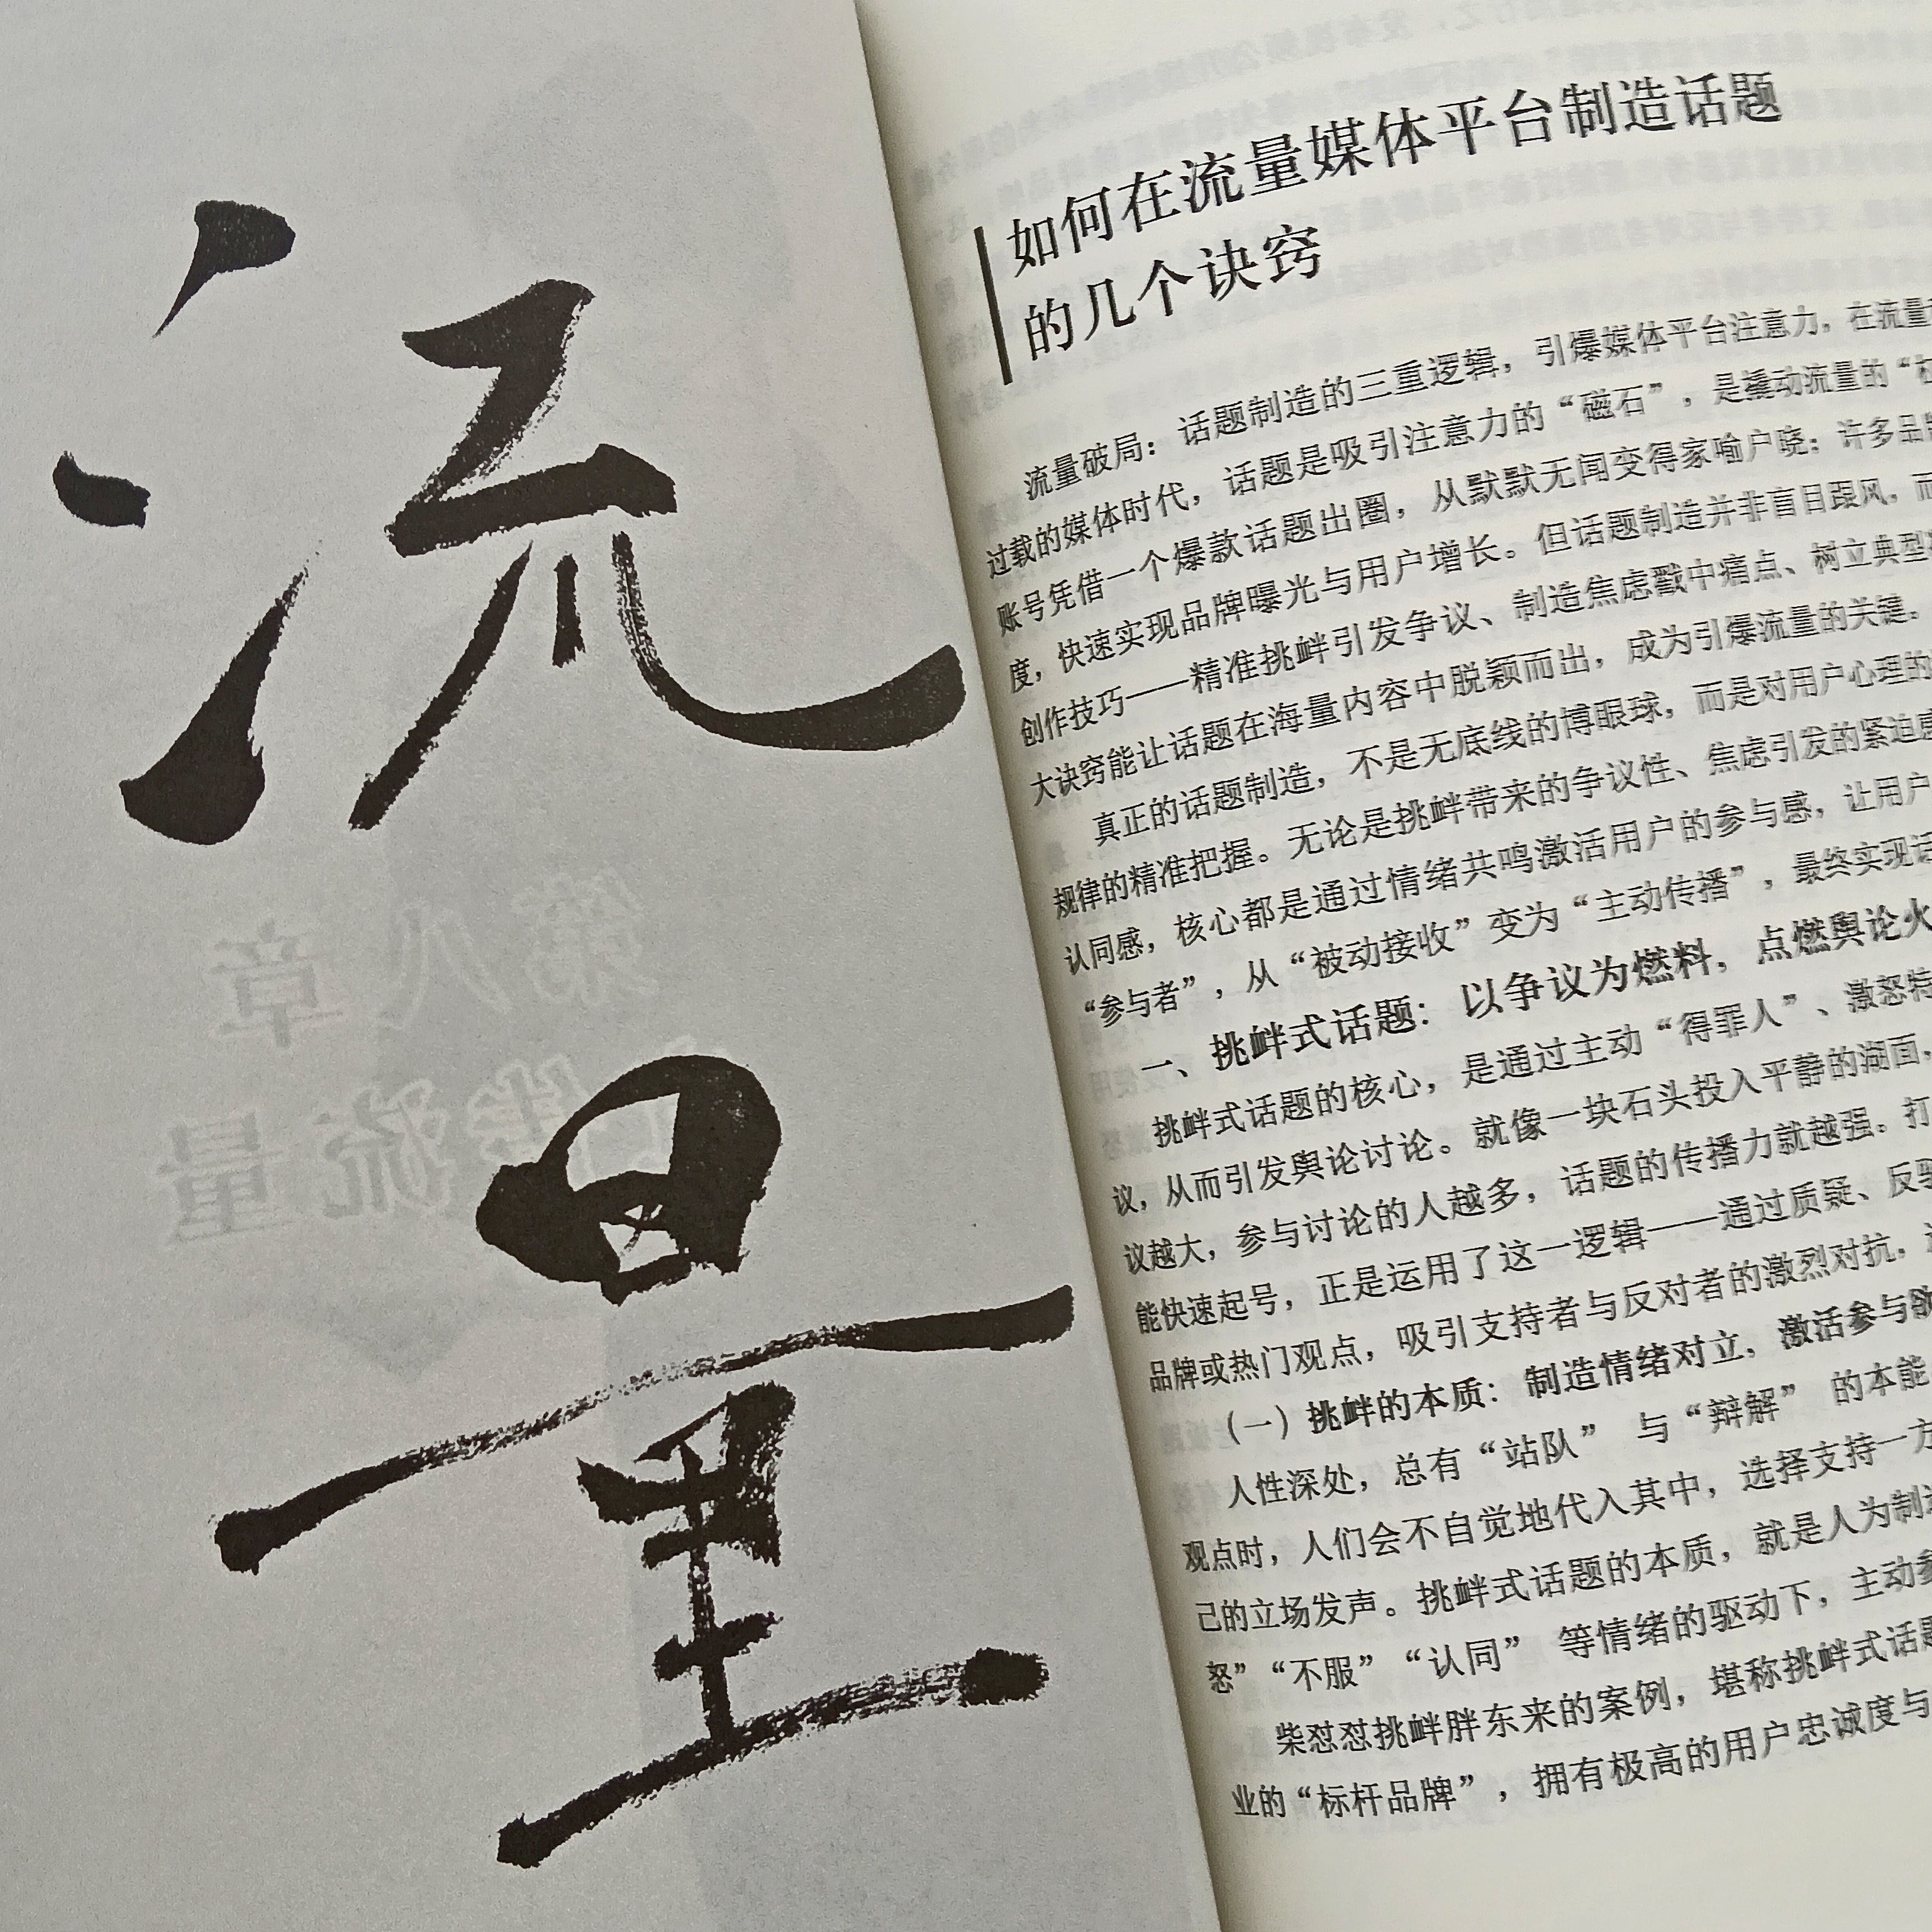 流量
如何在流量媒体平台制造话题
的几个诀窍
流量破局：话题制造的三重逻辑，引爆媒体平台注意力。在流量
过载的媒体时代，话题是吸引注意力的“磁石”，是撬动流量的“杠
账号凭借一个爆款话题出圈，从默默无闻变得家喻户晓；许多品牌
度，快速实现品牌曝光与用户增长。但话题制造并非盲目跟风，而
创作技巧——精准挑衅引发争议、制造焦虑戳中痛点、树立典型
大诀窍能让话题在海量内容中脱颖而出，成为引爆流量的关键。
真正的话题制造，不是无底线的博眼球，而是对用户心理的
规律的精准把握。无论是挑衅带来的争议性、焦虑引发的紧迫感
认同感，核心都是通过情绪共鸣激活用户的参与感，让用户
“参与者”，从“被动接收”变为“主动传播”，最终实现话
一、挑衅式话题：以争议为燃料，点燃舆论火
挑衅式话题的核心，是通过主动“得罪人”、激怒特
议，从而引发舆论讨论。就像一块石头投入平静的湖面，
议越大，参与讨论的人越多，话题的传播力就越强。打
能快速起号，正是运用了这一逻辑——通过质疑、反驳
品牌或热门观点，吸引支持者与反对者的激烈对抗，
（一）挑衅的本质：制造情绪对立，激活参与欲
人性深处，总有“站队” 与“辩解” 的本能
观点时，人们会不自觉地代入其中，选择支持一方
己的立场发声。挑衅式话题的本质，就是人为制造
怒”“不服”“认同” 等情绪的驱动下，主动参
柴怼怼挑衅胖东来的案例，堪称挑衅式话题
业的“标杆品牌”，拥有极高的用户忠诚度与